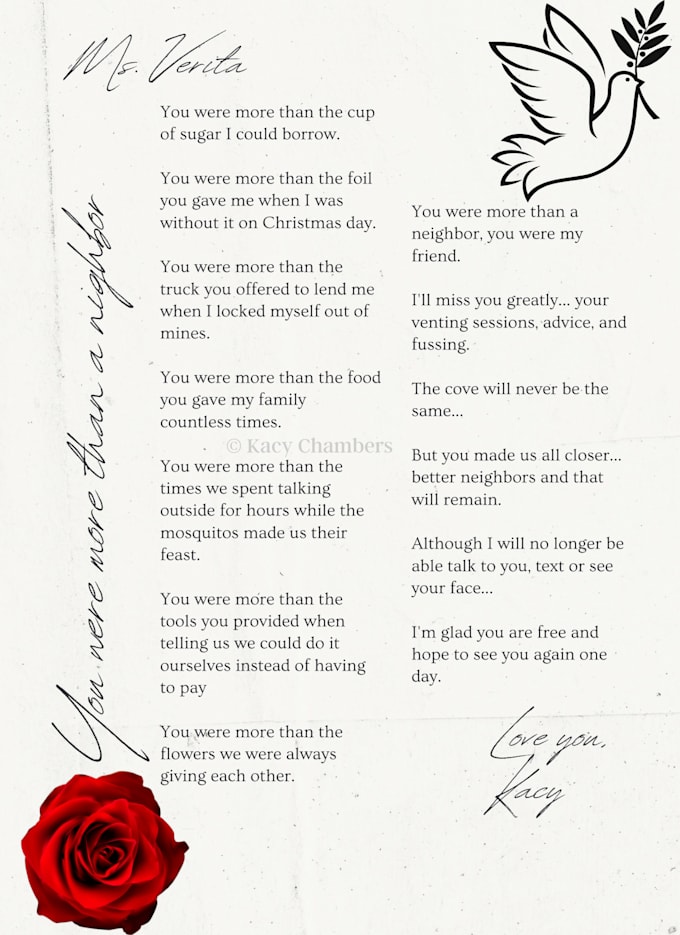 Ms. Verita
You were more than a nighbor
You were more than the cup
of sugar I could borrow.
You were more than the foil
you gave me when I was
without it on Christmas day.
You were more than the
truck you offered to lend me
when I locked myself out of
mines.
You were more than the food
you gave my family
countless times.
You were more than the
times we spent talking
outside for hours while the
mosquitos made us their
feast.
You were more than the
tools you provided when
telling us we could do it
ourselves instead of having
to pay
You were more than the
flowers we were always
giving each other.
You were more than a
neighbor, you were my
friend.
I'll miss you greatly... your
venting sessions, advice, and
fussing.
The cove will never be the
same...
But you made us all closer...
better neighbors and that
will remain.
Although I will no longer be
able talk to you, text or see
your face...
I'm glad you are free and
hope to see you again one
day.
Love you,
Kacy
© Kacy Chambers